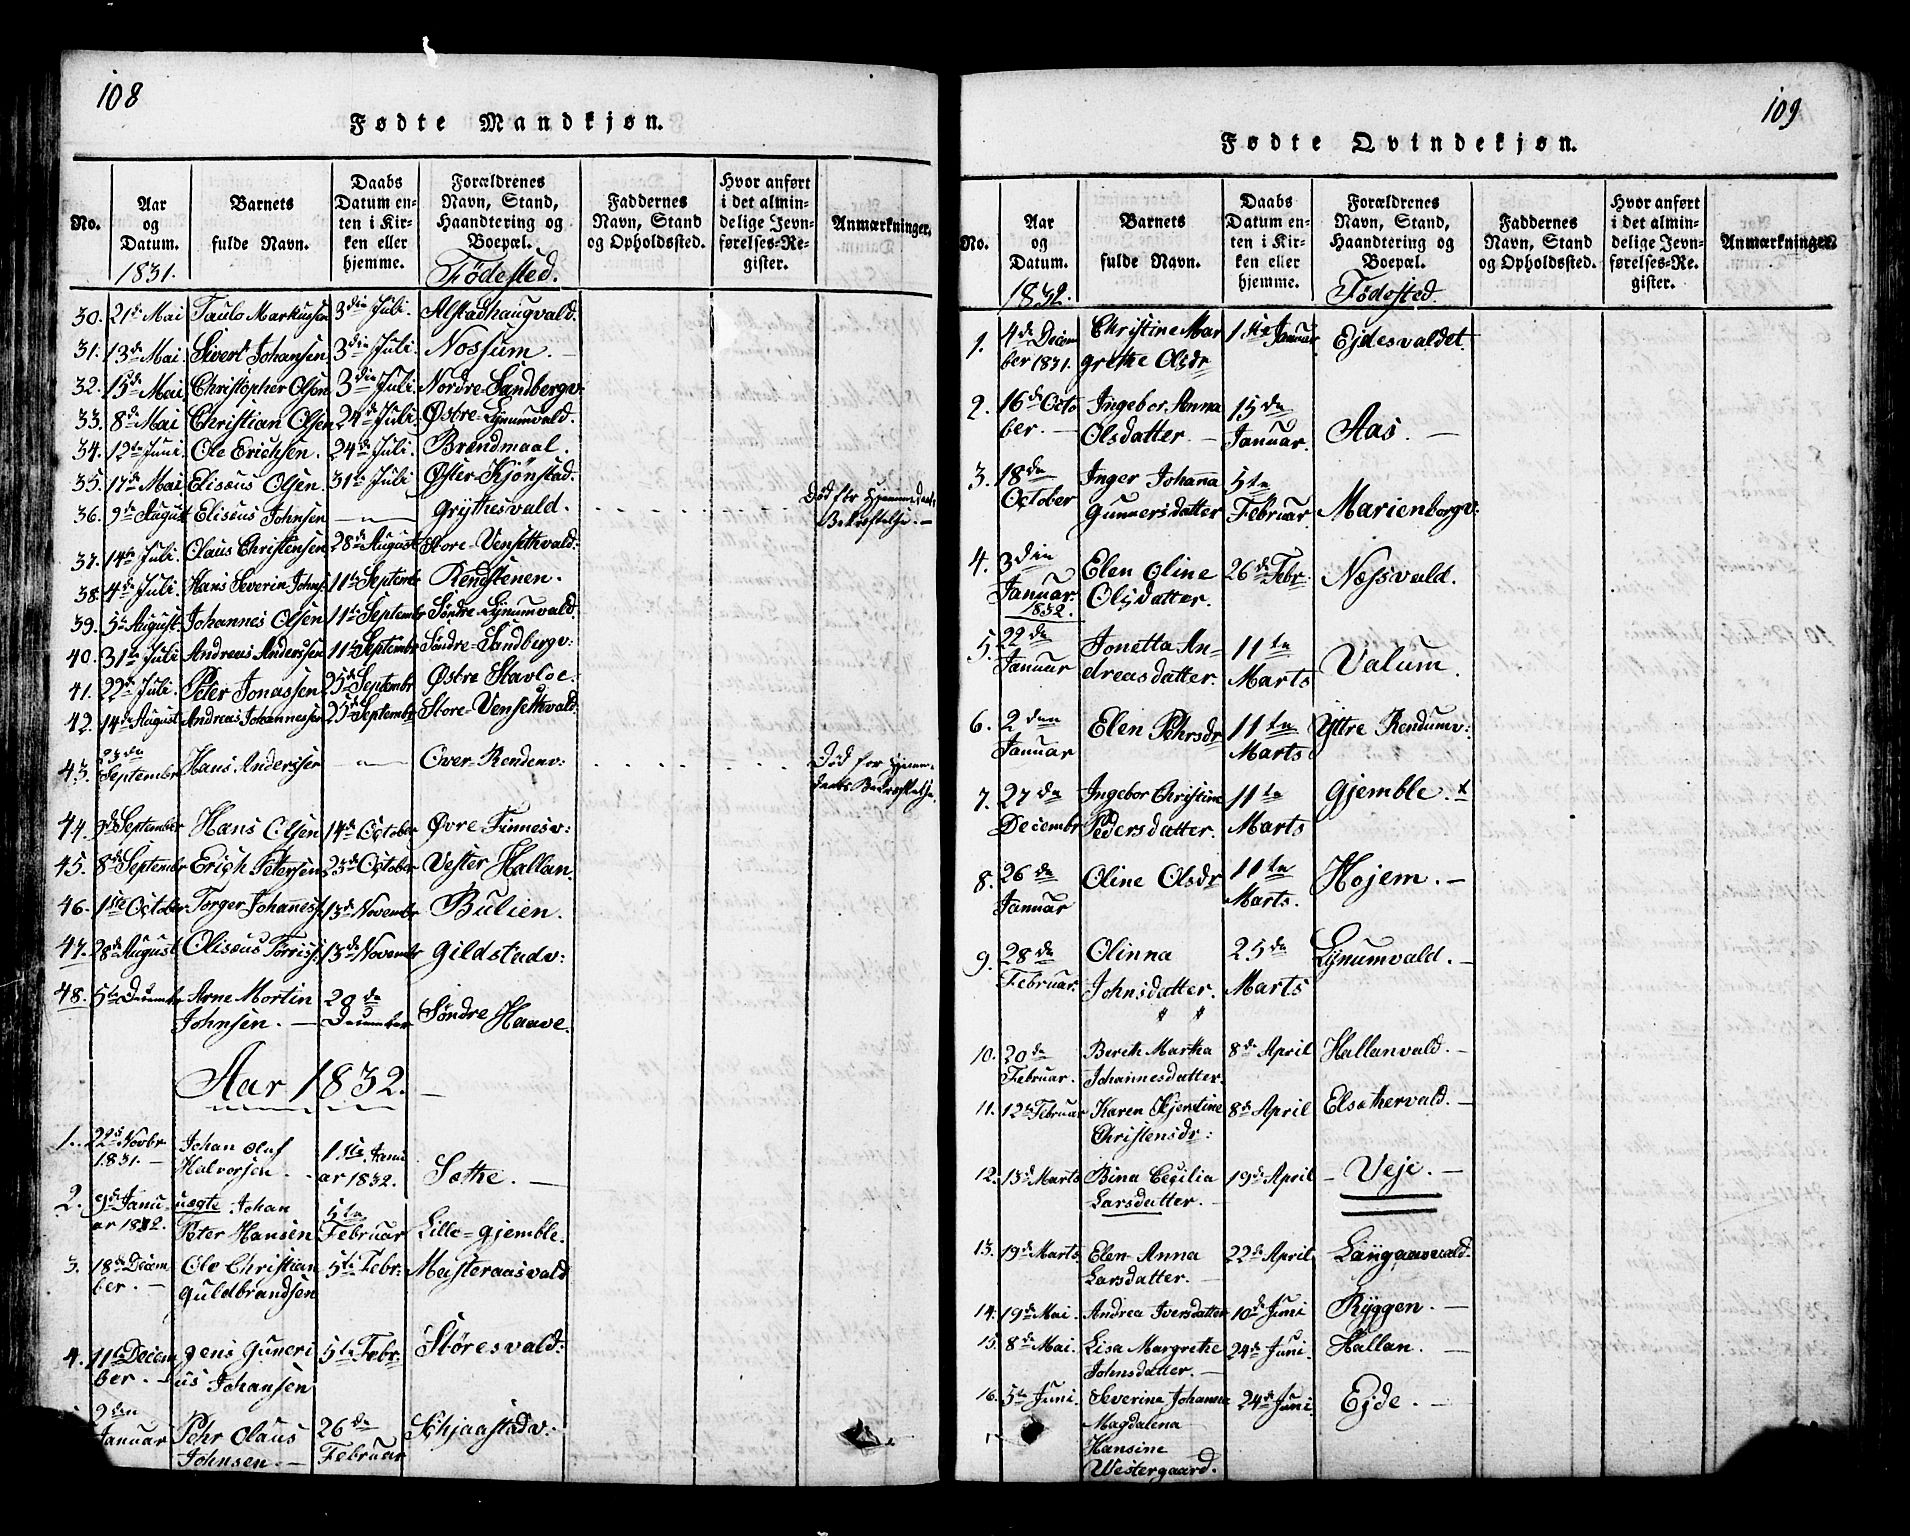 108
Fødte Mandkjøn.
No. | Aar og Datum. 1831. | Barnets fulde Navn. | Daabs Datum enten i Kirken eller hjemme. | Forældrenes Navn, Stand, Haandtering og Boepæl. Födested. | Faddernes Navn, Stand og Opholdssted. | Hvor anført i det almindelige Jevnførelses-Register. | Anmærkninger.
30. 21de Mai Paulo Markussen 3die Juli. Alstadhaugvald.
31. 13de Mai Sivert Johansen 3die Juli Nossum. —
32. 15de Mai Christopher Olsen 3die Juli Nordre-Sandbergv.
33. 8de Mai Christian Olsen 24de Juli. Østre-Lynumvald.
34. 12te Juni Ole Erichsen. 24de Juli. Brændmaal.
35. 17de Mai Elisæus Olsen 31te Juli Øster-Kjönstad.
36. 9de August Eliseus Johnsen —"— Grythesvald. Död før Hjemmedaab. Bekræftelse. —
37. 14te Juli. Claus Christensen 28de August Store-Vensethvald:
38. 4de Juli. Hans Severin Johns. 11te Septembr Rendstenen.
39. 5te August. Johannes Olsen 11te Septembr Söndre-Lynumvald.
40. 31te Juli Andreas Anderssen 11te Septembr Söndre-Sandbergv:
41. 22de Juli. Peter Jonassen 25de Septembr Østre Stavloe.
42. 14de August Andreas Johannessen 25de Septembr Store-Vensethvald.
43. 23de Septembr Hans Anderssen —"— Over-Rendenv: Död før Hjemmedaabs Bekræftelse.
44. 3de September Hans Olsen 14de October Øvre Finnesv:
45. 8de Septembr Erich Petersen 23de October Vester Hallan.
46. 1ste October Torger Johaness. 13de Novembr Bulien.
47. 28de August Olisæus Törriss. 13de Novembr Gildstadv:
48. 5te Decembr Arne Mortin Johnsen. — 29de December Söndre Haave.
Aar 1832. —
1. 22de Novbr 1831. — Johan Oluf Halvorsen. 1ste Januar 1832. Sæthe. —
2. 9de Januar 1832. uægte Johan Peter Hansen 5te Februar Lille-Gjemble.
3. 18de December. — Ole Christian Guldbrandsen 5te Febr: Mejsteraasvald
4. 11te December. — Jens Gunerius Johansen 5te Febr: Störesvald:
9den Januar Pehr Olaus Johnsen. — 26de Februar Schjaastadv:
109
Fødte Qvindekjøn.
No. | Aar og Datum. 1832. | Barnets fulde Navn. | Daabs Datum enten i Kirken eller hjemme. | Forældrenes Navn, Stand, Haandtering og Boepæl. Födested. | Faddernes Navn, Stand og Opholdssted. | Hvor anført i det almindelige Jevnførelses-Register. | Anmærkninger.
1. 4de December 1831. Christine Margrethe Olsdr 1ste Januar Ejdesvaldet.
2. 16de October. — Ingebor Anna Olsdatter. — 15de Januar. Aas. —
3. 18de October Inger Johana Gunnersdatter 5te Februar Marienborgv:
4. 3die Januar 1832. Elen Oline Olsdatter. 26de Febr. Næssvald.
5. 22de Januar Jonetta Andreasdatter. 11te Marts Valum.
6. 2den Januar Elen Pehrsdr 11te Marts Yttre Rendumv:
7. 27de Decembr Ingebor Christine Pedersdatter. 11te Marts Gjemble. x
8. 26de Januar Oline Olsdr 11te Marts. Hojem. —
9. 28de Februar. Olinna Johnsdatter. 25de Marts Lynumvald. —
10. 20de Februar. Bereth Martha Johannesdatter. 8de April Hallanvald. —
11. 12te Februar Karen Kjerstine Christensdr: 8de April Elsethervald. —
12. 13de Marts Bina Cecilia Larsdatter. — 19de April — Veje. —
13. 19de Marts Elen Anna Larsdatter. — 22de April Langaasvald.
14. 19de Mai. Andrea Iversdatter 10de Juni Ryggen. —
15. 8de Mai. Lisa Margrethe Johnsdatter. — 24de Juni. Hallan. —
16. 5te Juni. Severine Johanne Magdalena Hansine Westergaard. 24de Juni. Ejde. —